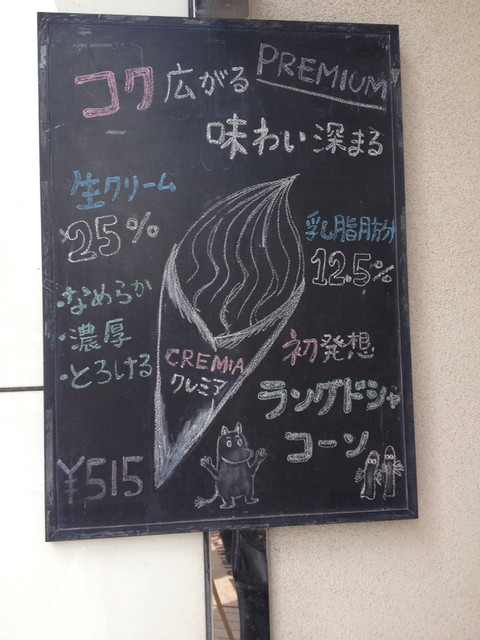 コク広がる PREMIUM
味わい深まる
生クリーム
25%
乳脂肪分
12.5%
・なめらか
・濃厚
・とろける
CREMIA
クレミア
初発想
ラングドシャ
コーン
¥515